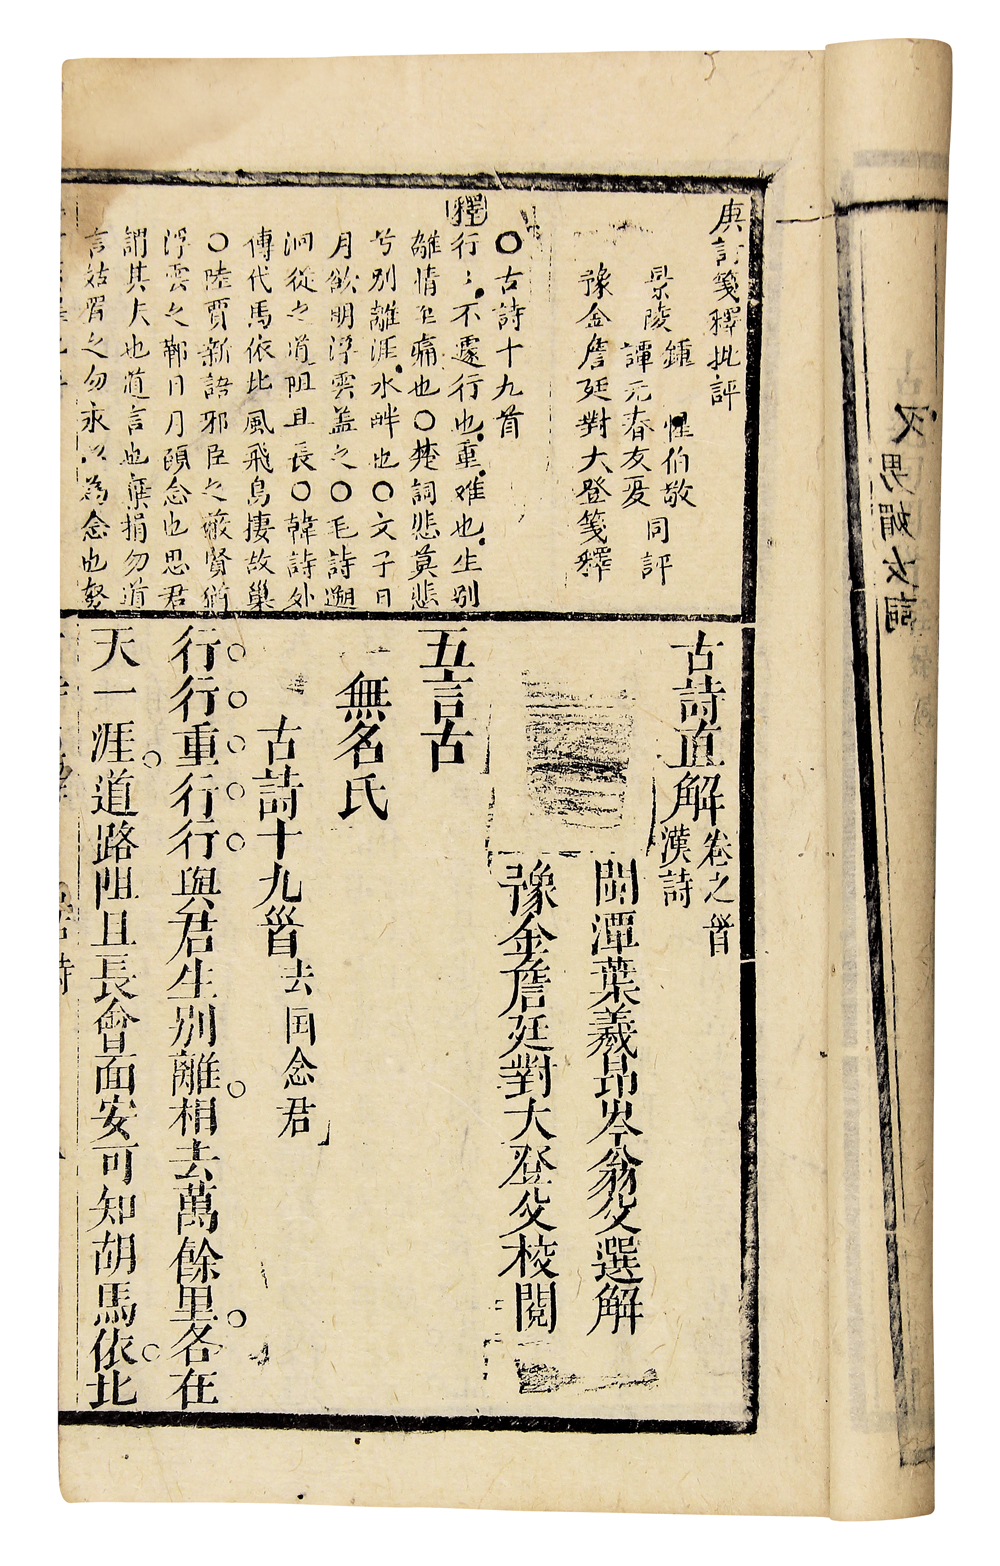 庚訂箋釋批評
景陵 鍾 惺伯敬 同評
譚元春友夏
豫金詹廷對大登箋釋
○古詩十九首
釋行〻不遽行也重难也生別
離情至痛也○楚詞悲莫悲
兮別離涯水畔也○文子日
月欲明浮雲盖之○毛詩遡
洄從之道阻且長○韓詩外
傳代馬依北風飛鳥棲故巢
○陸賈新語邪臣之蔽賢猶
浮雲之鄣日月顧念也思君
謂其夫也道言也棄捐勿道
言姑置之勿永以為念也努
古詩直解卷之首
漢詩
閩潭葉羲昂岑翁父選解
豫金詹廷對大登父校閱
五言古
無名氏
古詩十九首去国念君
行行重行行與君生別離相去萬餘里各在
天一涯道路阻且長會面安可知胡馬依北
男媚女詞